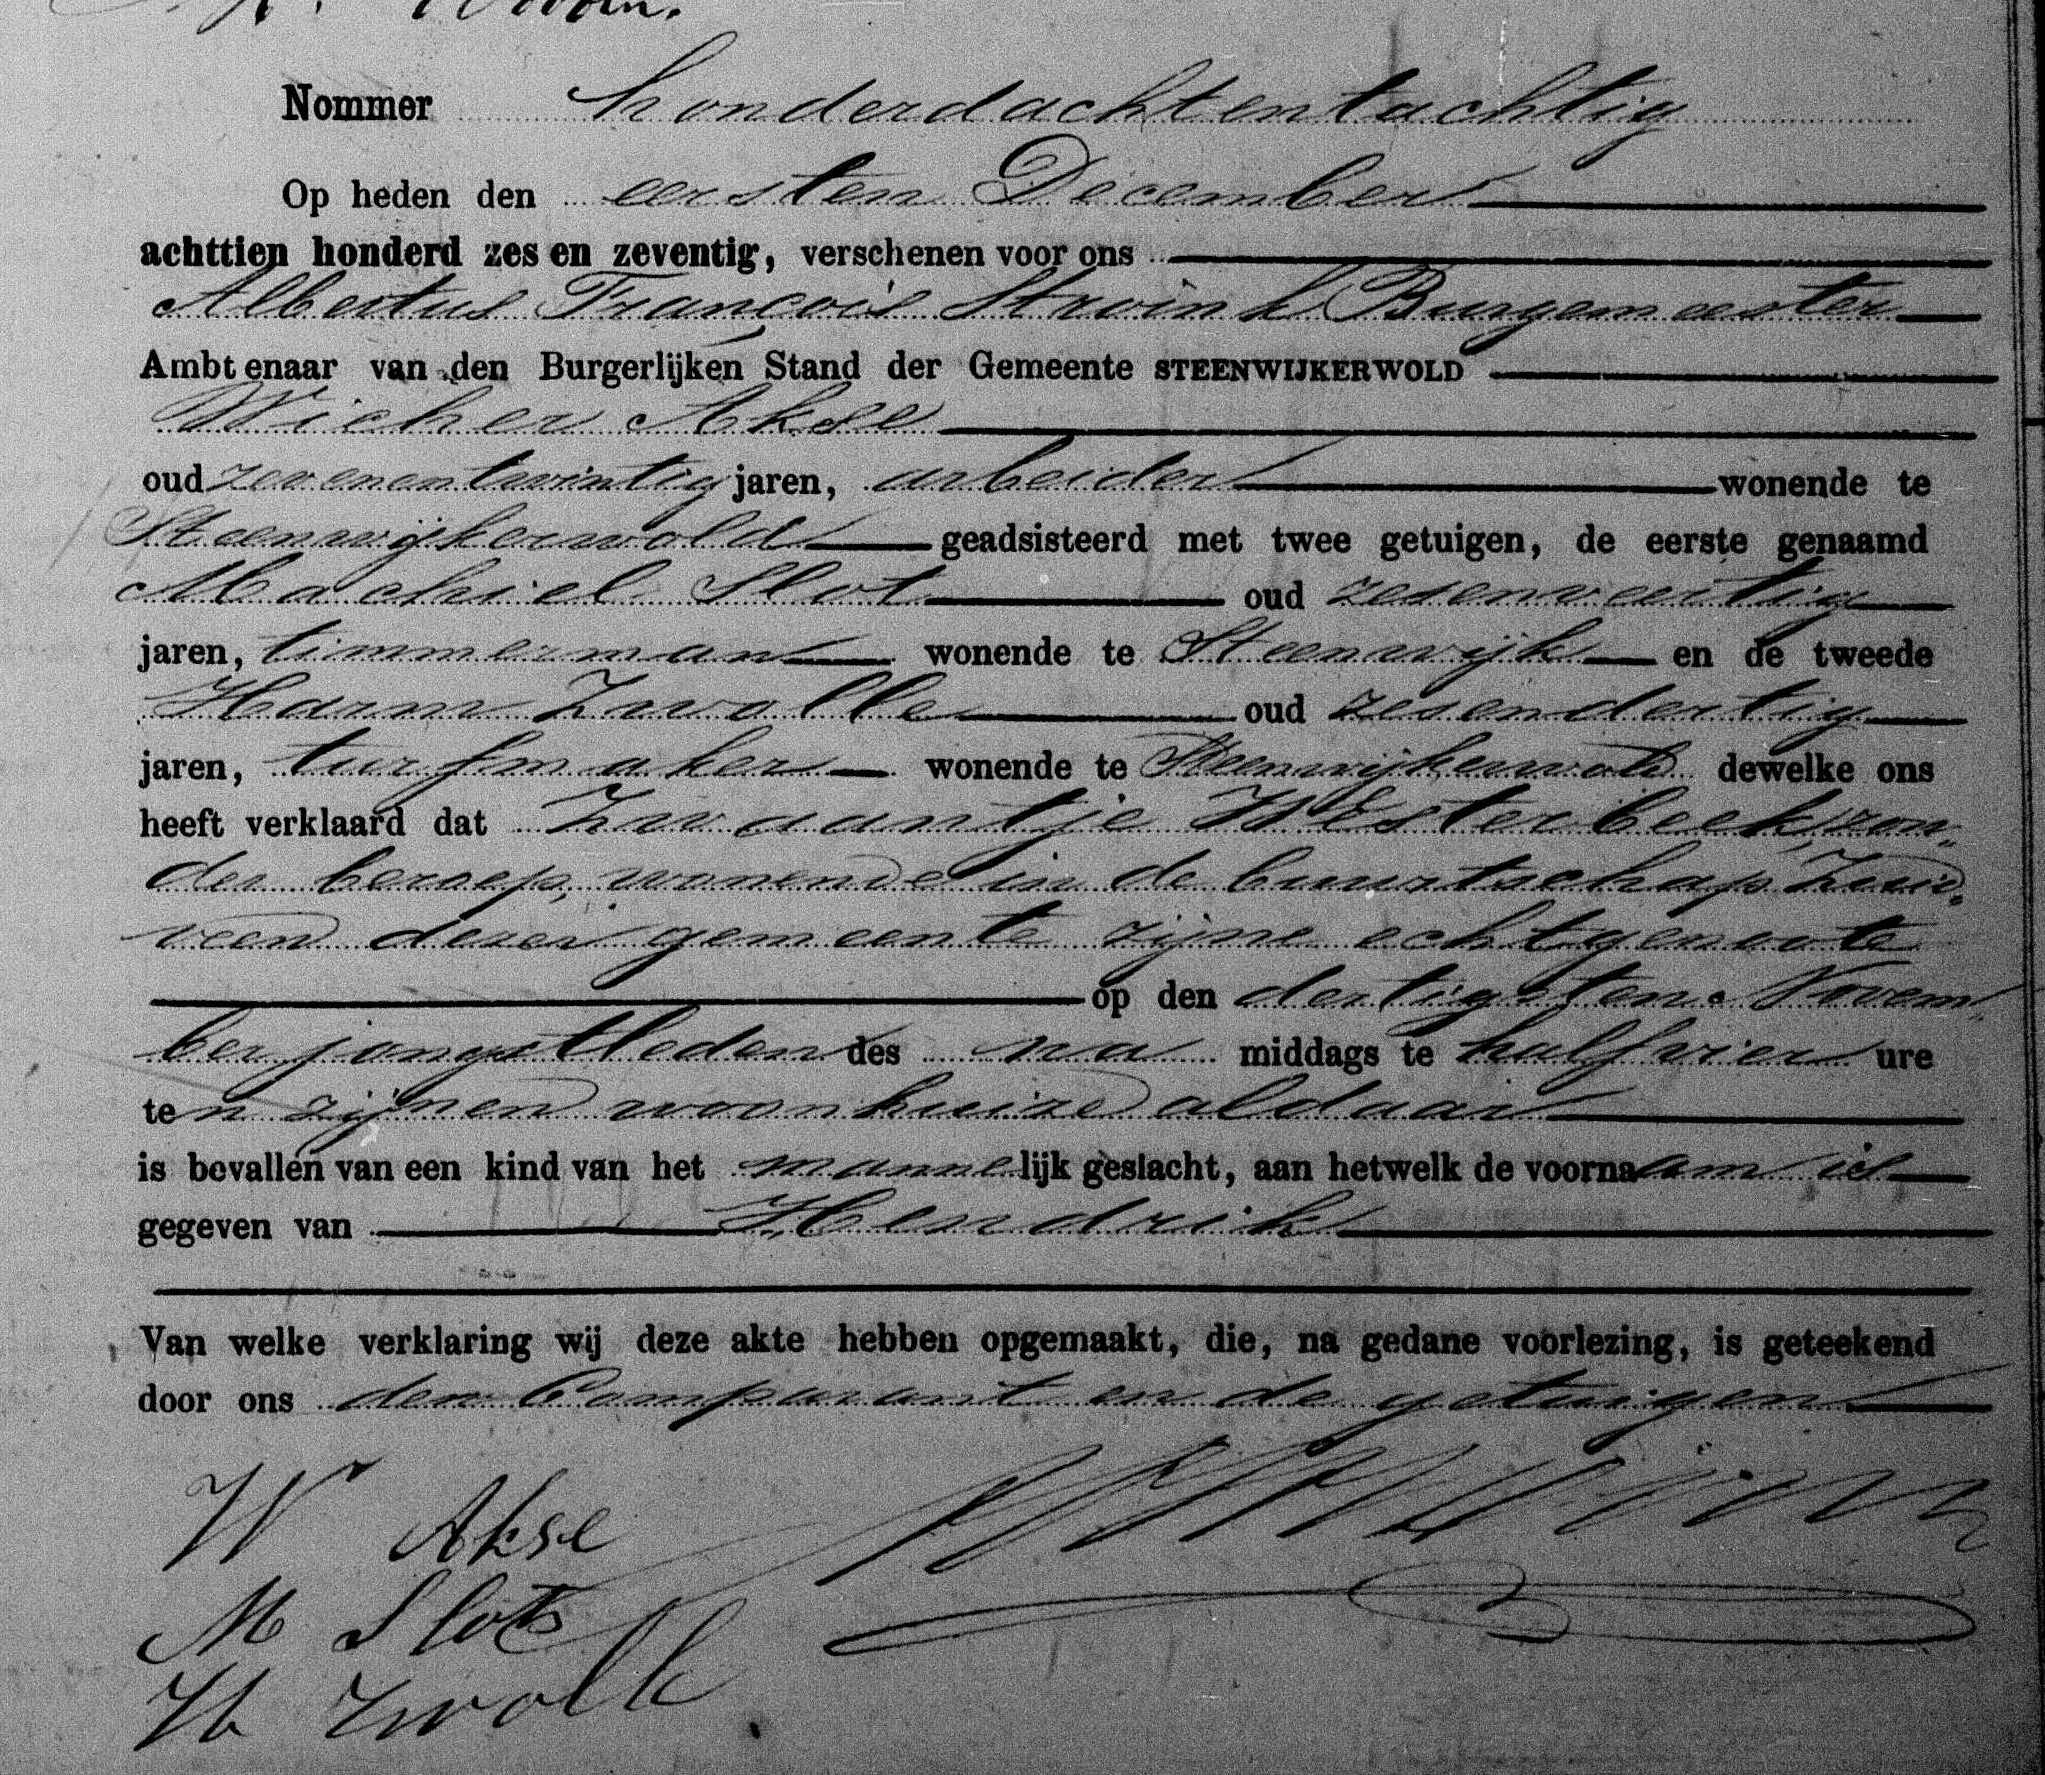 Nommer honderdachtentachtig
Op heden den eersten December
achttien honderd zes en zeventig, verschenen voor ons
Albertus François Stroink Burgemeester
Ambtenaar van den Burgerlijken Stand der Gemeente STEENWIJKERWOLD
Wicher Akse
oud zevenentwintig jaren, arbeider wonende te
Steenwijkerwold geadsisteerd met twee getuigen, de eerste genaamd
Machiel Slot oud zesenveertig
jaren, timmerman wonende te Steenwijk en de tweede
Harm Zwolle oud zesendertig
jaren, turfmaker wonende te Steenwijkerwold dewelke ons
heeft verklaard dat Zwaantje Westerbeek, zon„
der beroep, wonende in de buurtschap Zuid„
veen dezer gemeente zijne echtgenoote
op den dertigsten Novem„
ber jongstleden des na middags te half vier ure
ten zijnen woonhuize aldaar
is bevallen van een kind van het mannelijk geslacht, aan hetwelk de voornaam is
gegeven van Hendrik
Van welke verklaring wij deze akte hebben opgemaakt, die, na gedane voorlezing, is geteekend
door ons den Comparant en de getuigen
W Akse
M Slot
H Zwolle